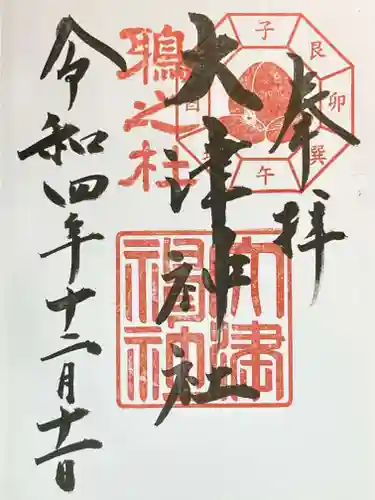 奉拝
大津神社
令和四年十二月十一日
鵲之杜
子
艮
卯
巽
午
酉
大津
神社